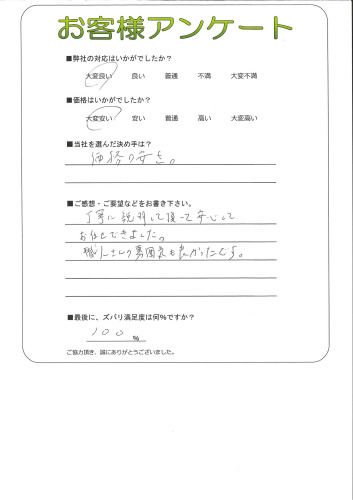 お客様アンケート
■弊社の対応はいかがでしたか？
大変良い 良い 普通 不満 大変不満
■価格はいかがでしたか？
大変安い 安い 普通 高い 大変高い
■当社を選んだ決め手は？
価格の安さ。
■ご感想・ご要望などをお書き下さい。
丁寧に説明して頂いて安心して
お任せできました。
職人さんの雰囲気も良かったです。
■最後に、ズバリ満足度は何％ですか？
100 %
ご協力頂き、誠にありがとうございました。